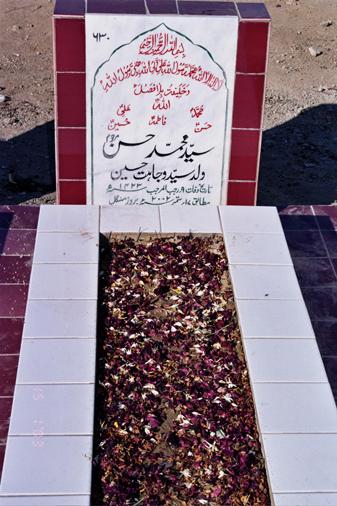 ۶۳۰
بسم اللہ الرحمن الرحیم
لا الہ الا اللہ محمد رسول اللہ علی ولی اللہ وصی رسول اللہ
و خلیفتہ بلا فصل
اللہ
محمد علی
فاطمہ
حسن حسین
سید محمد حسن مرحوم
ولد سید وجاہت حسین
تاریخ وفات ۹ رجب المرجب ۱۴۲۳ھ
مطابق ۱۷ ستمبر ۲۰۰۲ء بروز منگل